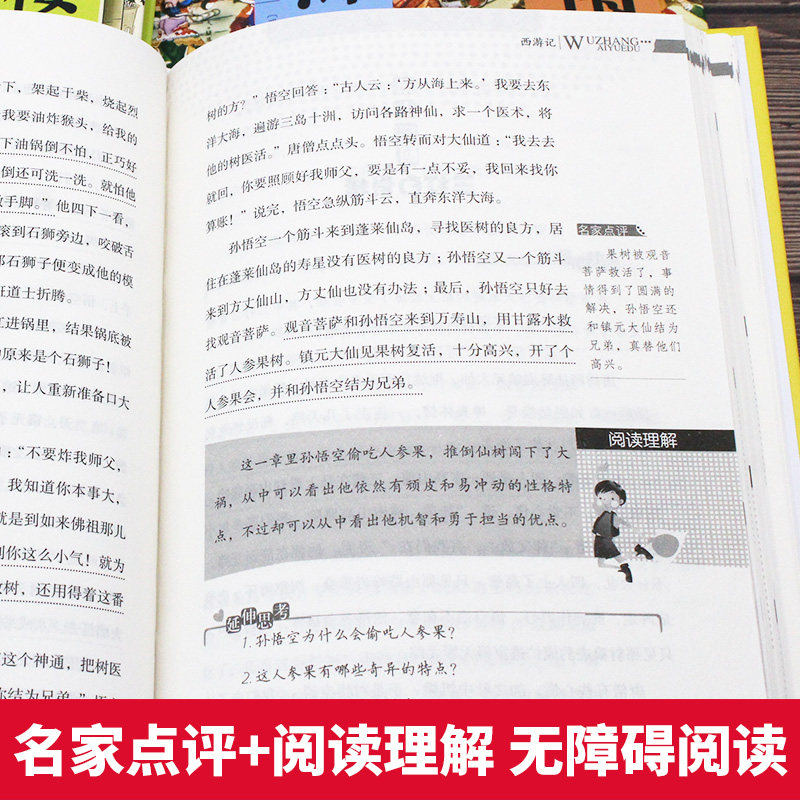 下，架起干柴，烧起烈
我要油炸猴头，给我的
下油锅倒不怕，正巧好
倒还可洗一洗。就怕他
手脚。”他四下一看，
滚到石狮旁边，咬破舌
石狮子便变成他的模
道士折腾。
进锅里，结果锅底被
原来是个石狮子！
，让人重新准备口大
：“不要炸我师父，
，我知道你本事大，
就是到如来佛祖那儿
到你这么小气！就为
树，还用得着这番
这个神通，把树医
你结为兄弟。”
西游记 WUZHANG AIYUEDU
树的方？”悟空回答：“古人云：‘方从海上来。’我要去东
洋大海，遍游三岛十洲，访问各路神仙，求一个医术，将
他的树医活。”唐僧点点头。悟空转而对大仙道：“我去去
就回，你要照顾好我师父，要是有一点不妥，我回来找你
算账！”说完，悟空急纵筋斗云，直奔东洋大海。
孙悟空一个筋斗来到蓬莱仙岛，寻找医树的良方，居
住在蓬莱仙岛的寿星没有医树的良方；孙悟空又一个筋斗
来到方丈仙山，方丈仙也没有办法；最后，孙悟空只好去
找观音菩萨。观音菩萨和孙悟空来到万寿山，用甘露水救
活了人参果树。镇元大仙见果树复活，十分高兴，开了个
人参果会，并和孙悟空结为兄弟。
名家点评
果树被观音
菩萨救活了，事
情得到了圆满的
解决，孙悟空还
和镇元大仙结为
兄弟，真替他们
高兴。
阅读理解
这一章里孙悟空偷吃人参果，推倒仙树闯下了大
祸，从中可以看出他依然有顽皮和易冲动的性格特
点，不过却可以从中看出他机智和勇于担当的优点。
延伸思考
1.孙悟空为什么会偷吃人参果？
2.这人参果有哪些奇异的特点？
名家点评+阅读理解 无障碍阅读